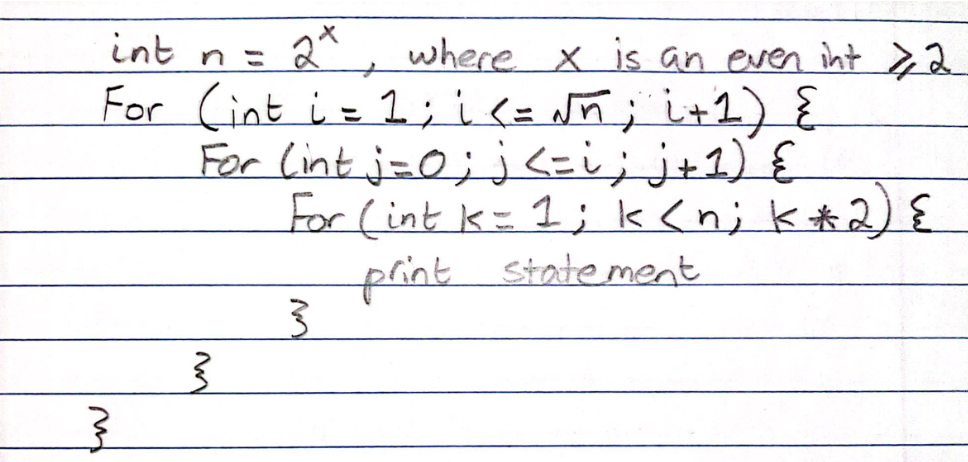 int n = 2^x, where x is an even int ⩾ 2
For (int i = 1; i <= √n; i+1) {
For (int j=0; j <=i; j+1) {
For (int k = 1; k < n; k * 2) {
print statement
}
}
}